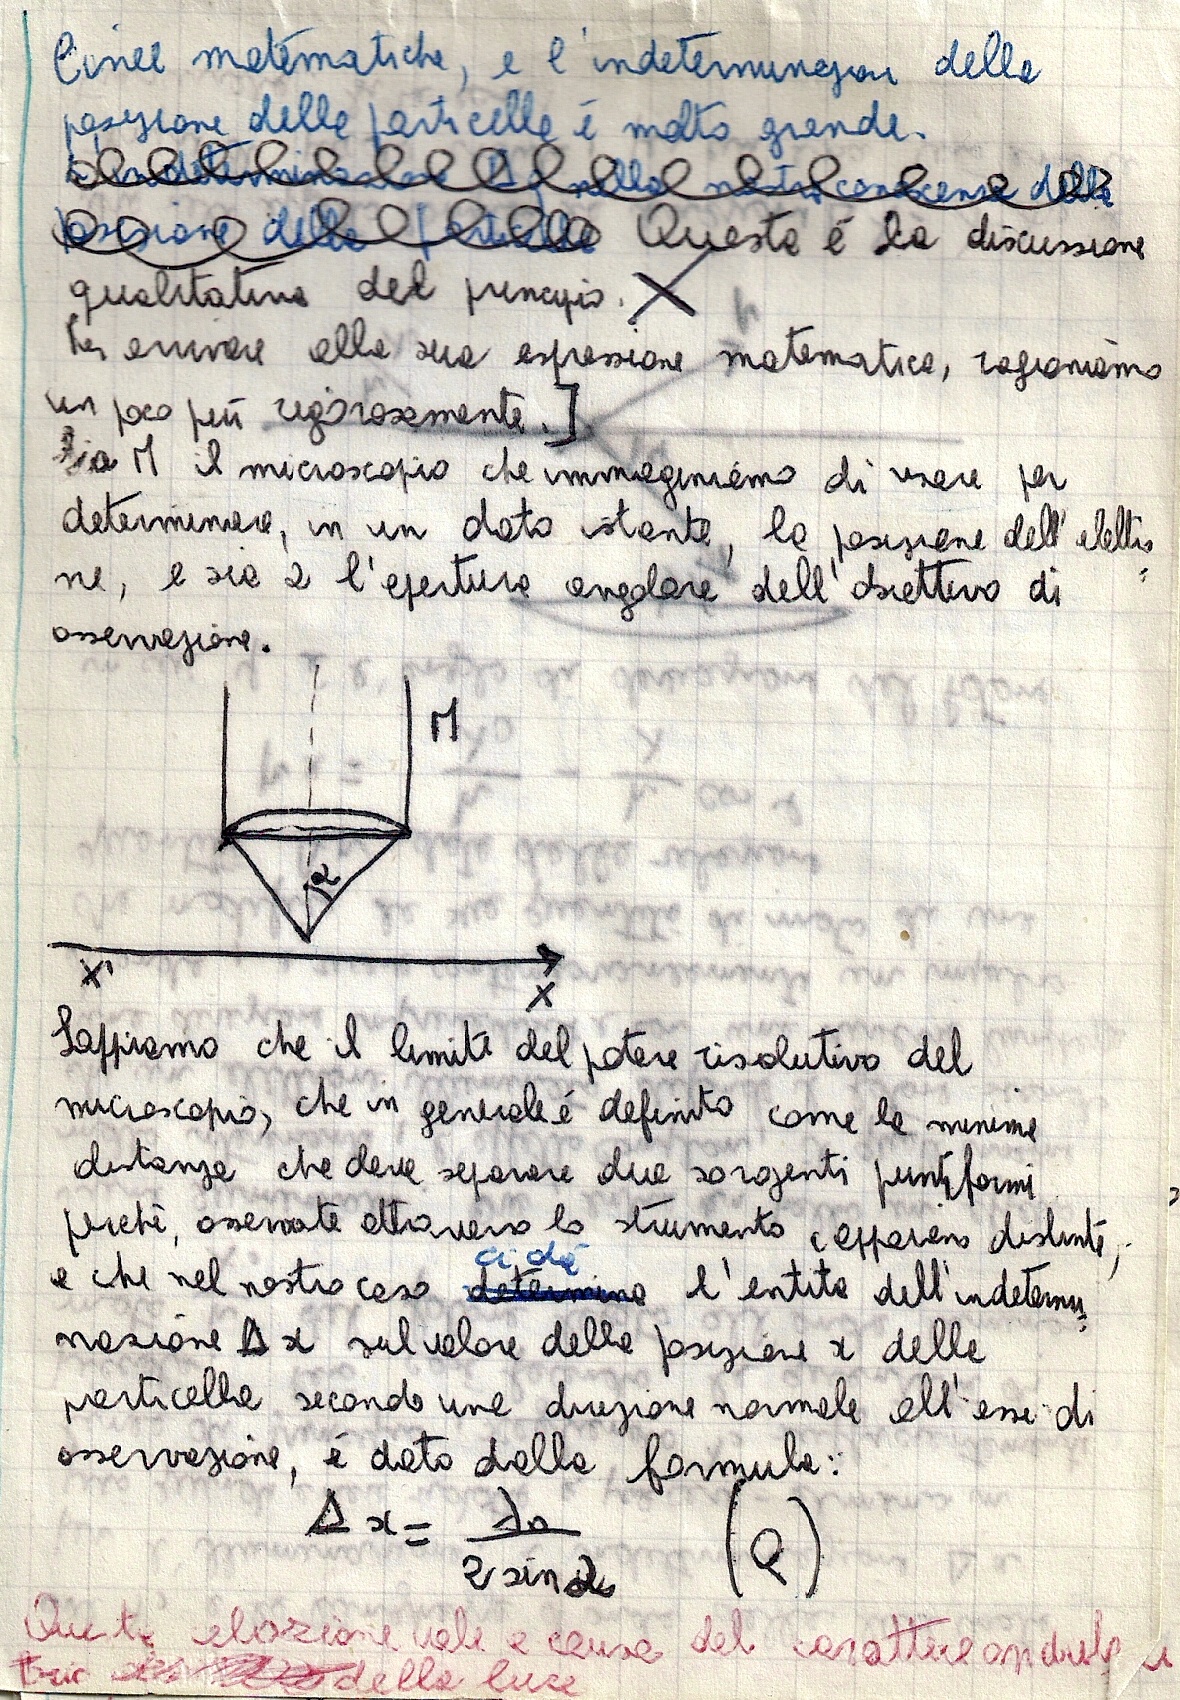 linee matematiche, e l'indeterminazione della
posizione delle particelle é molto grande.
indeterminazione Δ nella nostra conoscenza della
posizione delle particelle Questa é la discussione
qualitativa del principio. X
Per arrivare alla sua espressione matematica, ragioniamo
un poco piú rigorosamente.]
Sia M il microscopio che immaginiamo di usare per
determinare, in un dato istante, la posizione dell'elettro
ne, e sia α l'apertura angolare dell'obiettivo di
osservazione.
M
α
X'
X
Sappiamo che il limite del potere risolutivo del
microscopio, che in generale é definito come la minima
distanza che deve separare due sorgenti puntiformi
perché, osservate attraverso lo strumento appaiano distinte,
ci dá
e che nel nostro caso determina l'entità dell'indetermi
nazione Δx sul valore della posizione x della
particella secondo una direzione normale all'asse di
osservazione, é dato dalla formula:
Δx = λ₀ / 2 sin α (Q)
Questa relazione vale a causa del carattere ondula
torio della luce